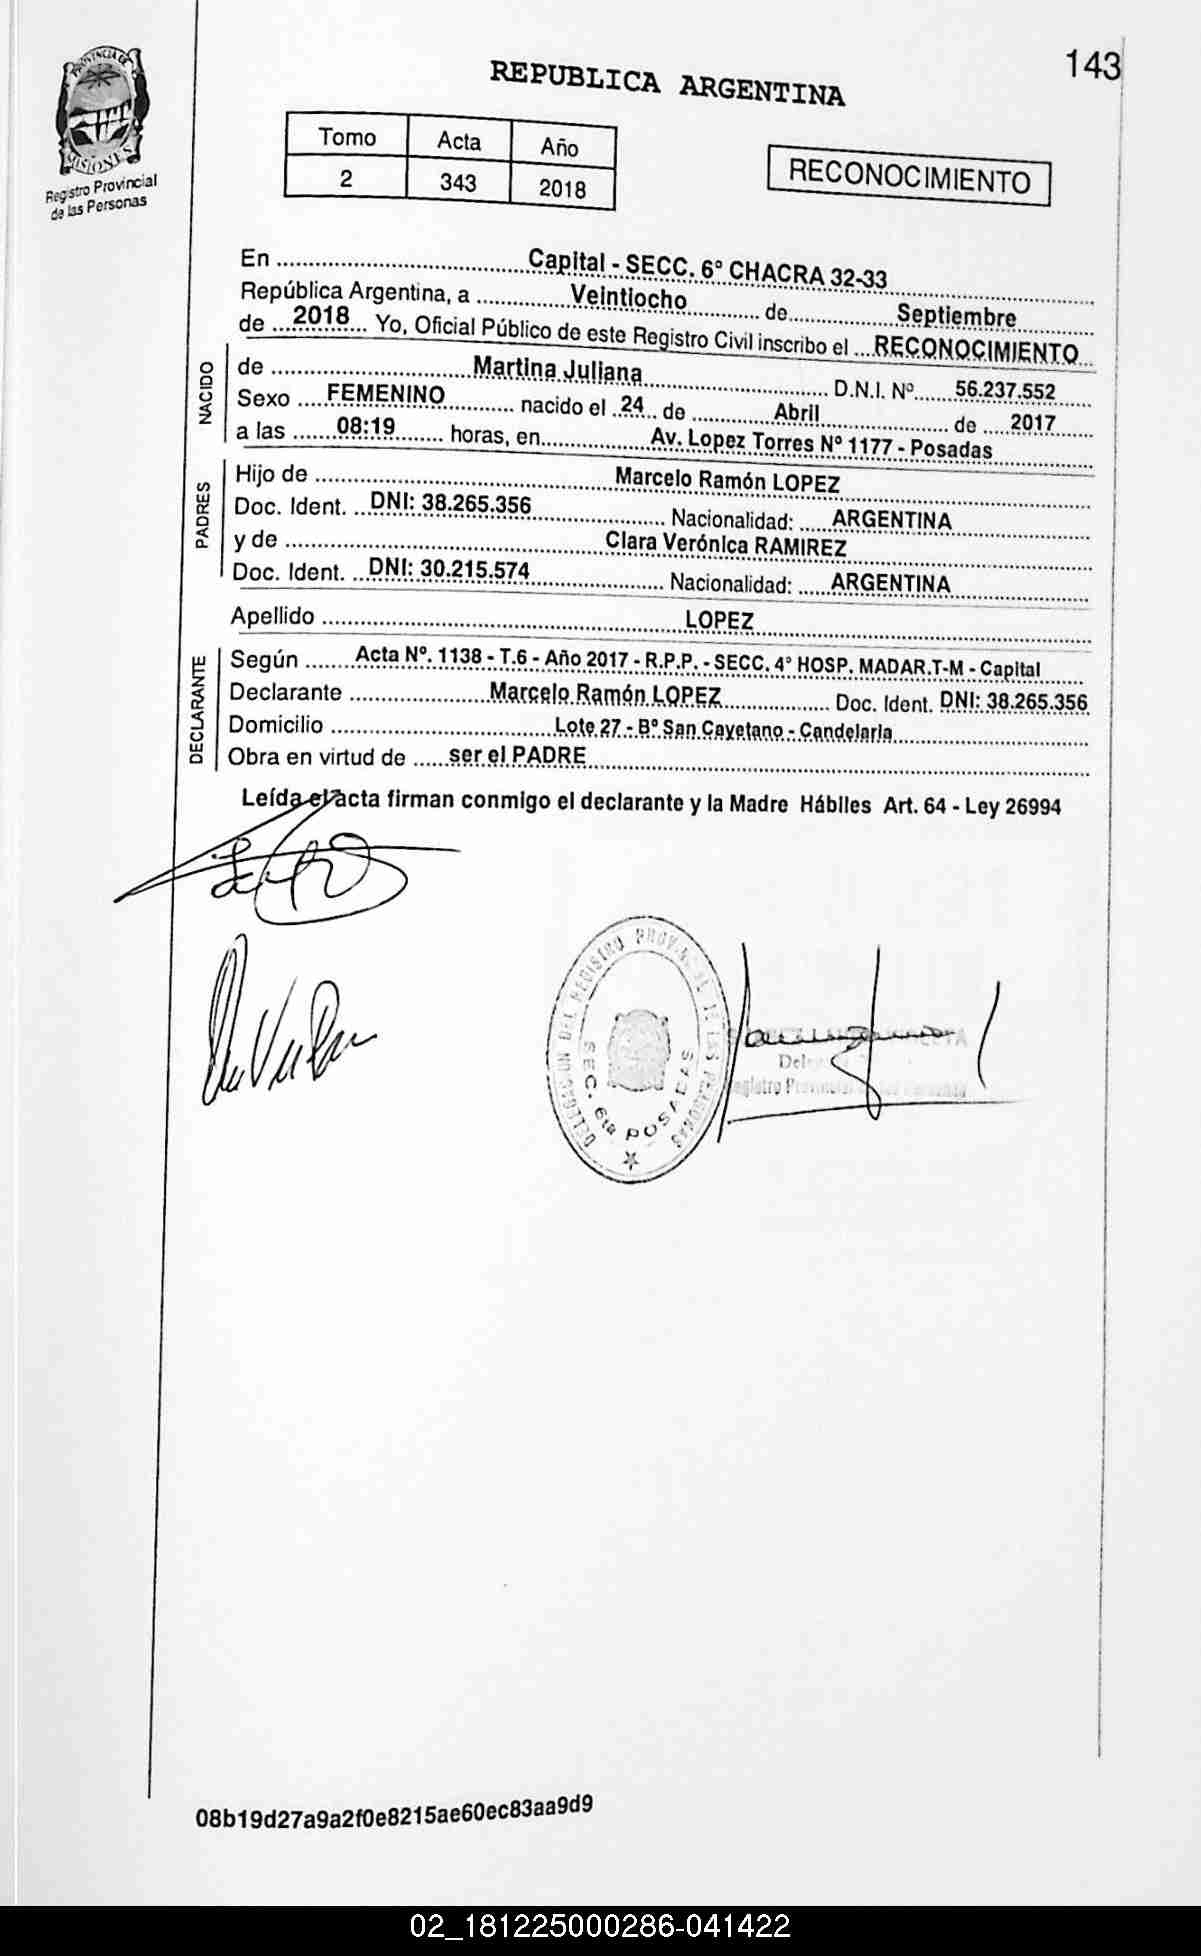 143
PROVINCIA DE
MISIONES
Registro Provincial
de las Personas
REPUBLICA ARGENTINA
Tomo Acta Año
2 343 2018
RECONOCIMIENTO
En Capital - SECC. 6º CHACRA 32-33
República Argentina, a Veintiocho de Septiembre
de 2018 Yo, Oficial Público de este Registro Civil inscribo el RECONOCIMIENTO
NACIDO
de Martina Juliana D.N.I. Nº 56.237.552
Sexo FEMENINO nacido el 24 de Abril de 2017
a las 08:19 horas, en Av. Lopez Torres Nº 1177 - Posadas
PADRES
Hijo de Marcelo Ramón LOPEZ
Doc. Ident. DNI: 38.265.356 Nacionalidad: ARGENTINA
y de Clara Verónica RAMIREZ
Doc. Ident. DNI: 30.215.574 Nacionalidad: ARGENTINA
Apellido LOPEZ
DECLARANTE
Según Acta Nº. 1138 - T.6 - Año 2017 - R.P.P. - SECC. 4º HOSP. MADAR.T-M - Capital
Declarante Marcelo Ramón LOPEZ Doc. Ident. DNI: 38.265.356
Domicilio Lote 27 - Bº San Cayetano - Candelaria
Obra en virtud de ser el PADRE
Leída el acta firman conmigo el declarante y la Madre Hábiles Art. 64 - Ley 26994
DELEGACION DEL REGISTRO PROVINCIAL DE LAS PERSONAS
SEC. 6ta POSADAS
Registro Provincial de las Personas
08b19d27a9a2f0e8215ae60ec83aa9d9
02_181225000286-041422